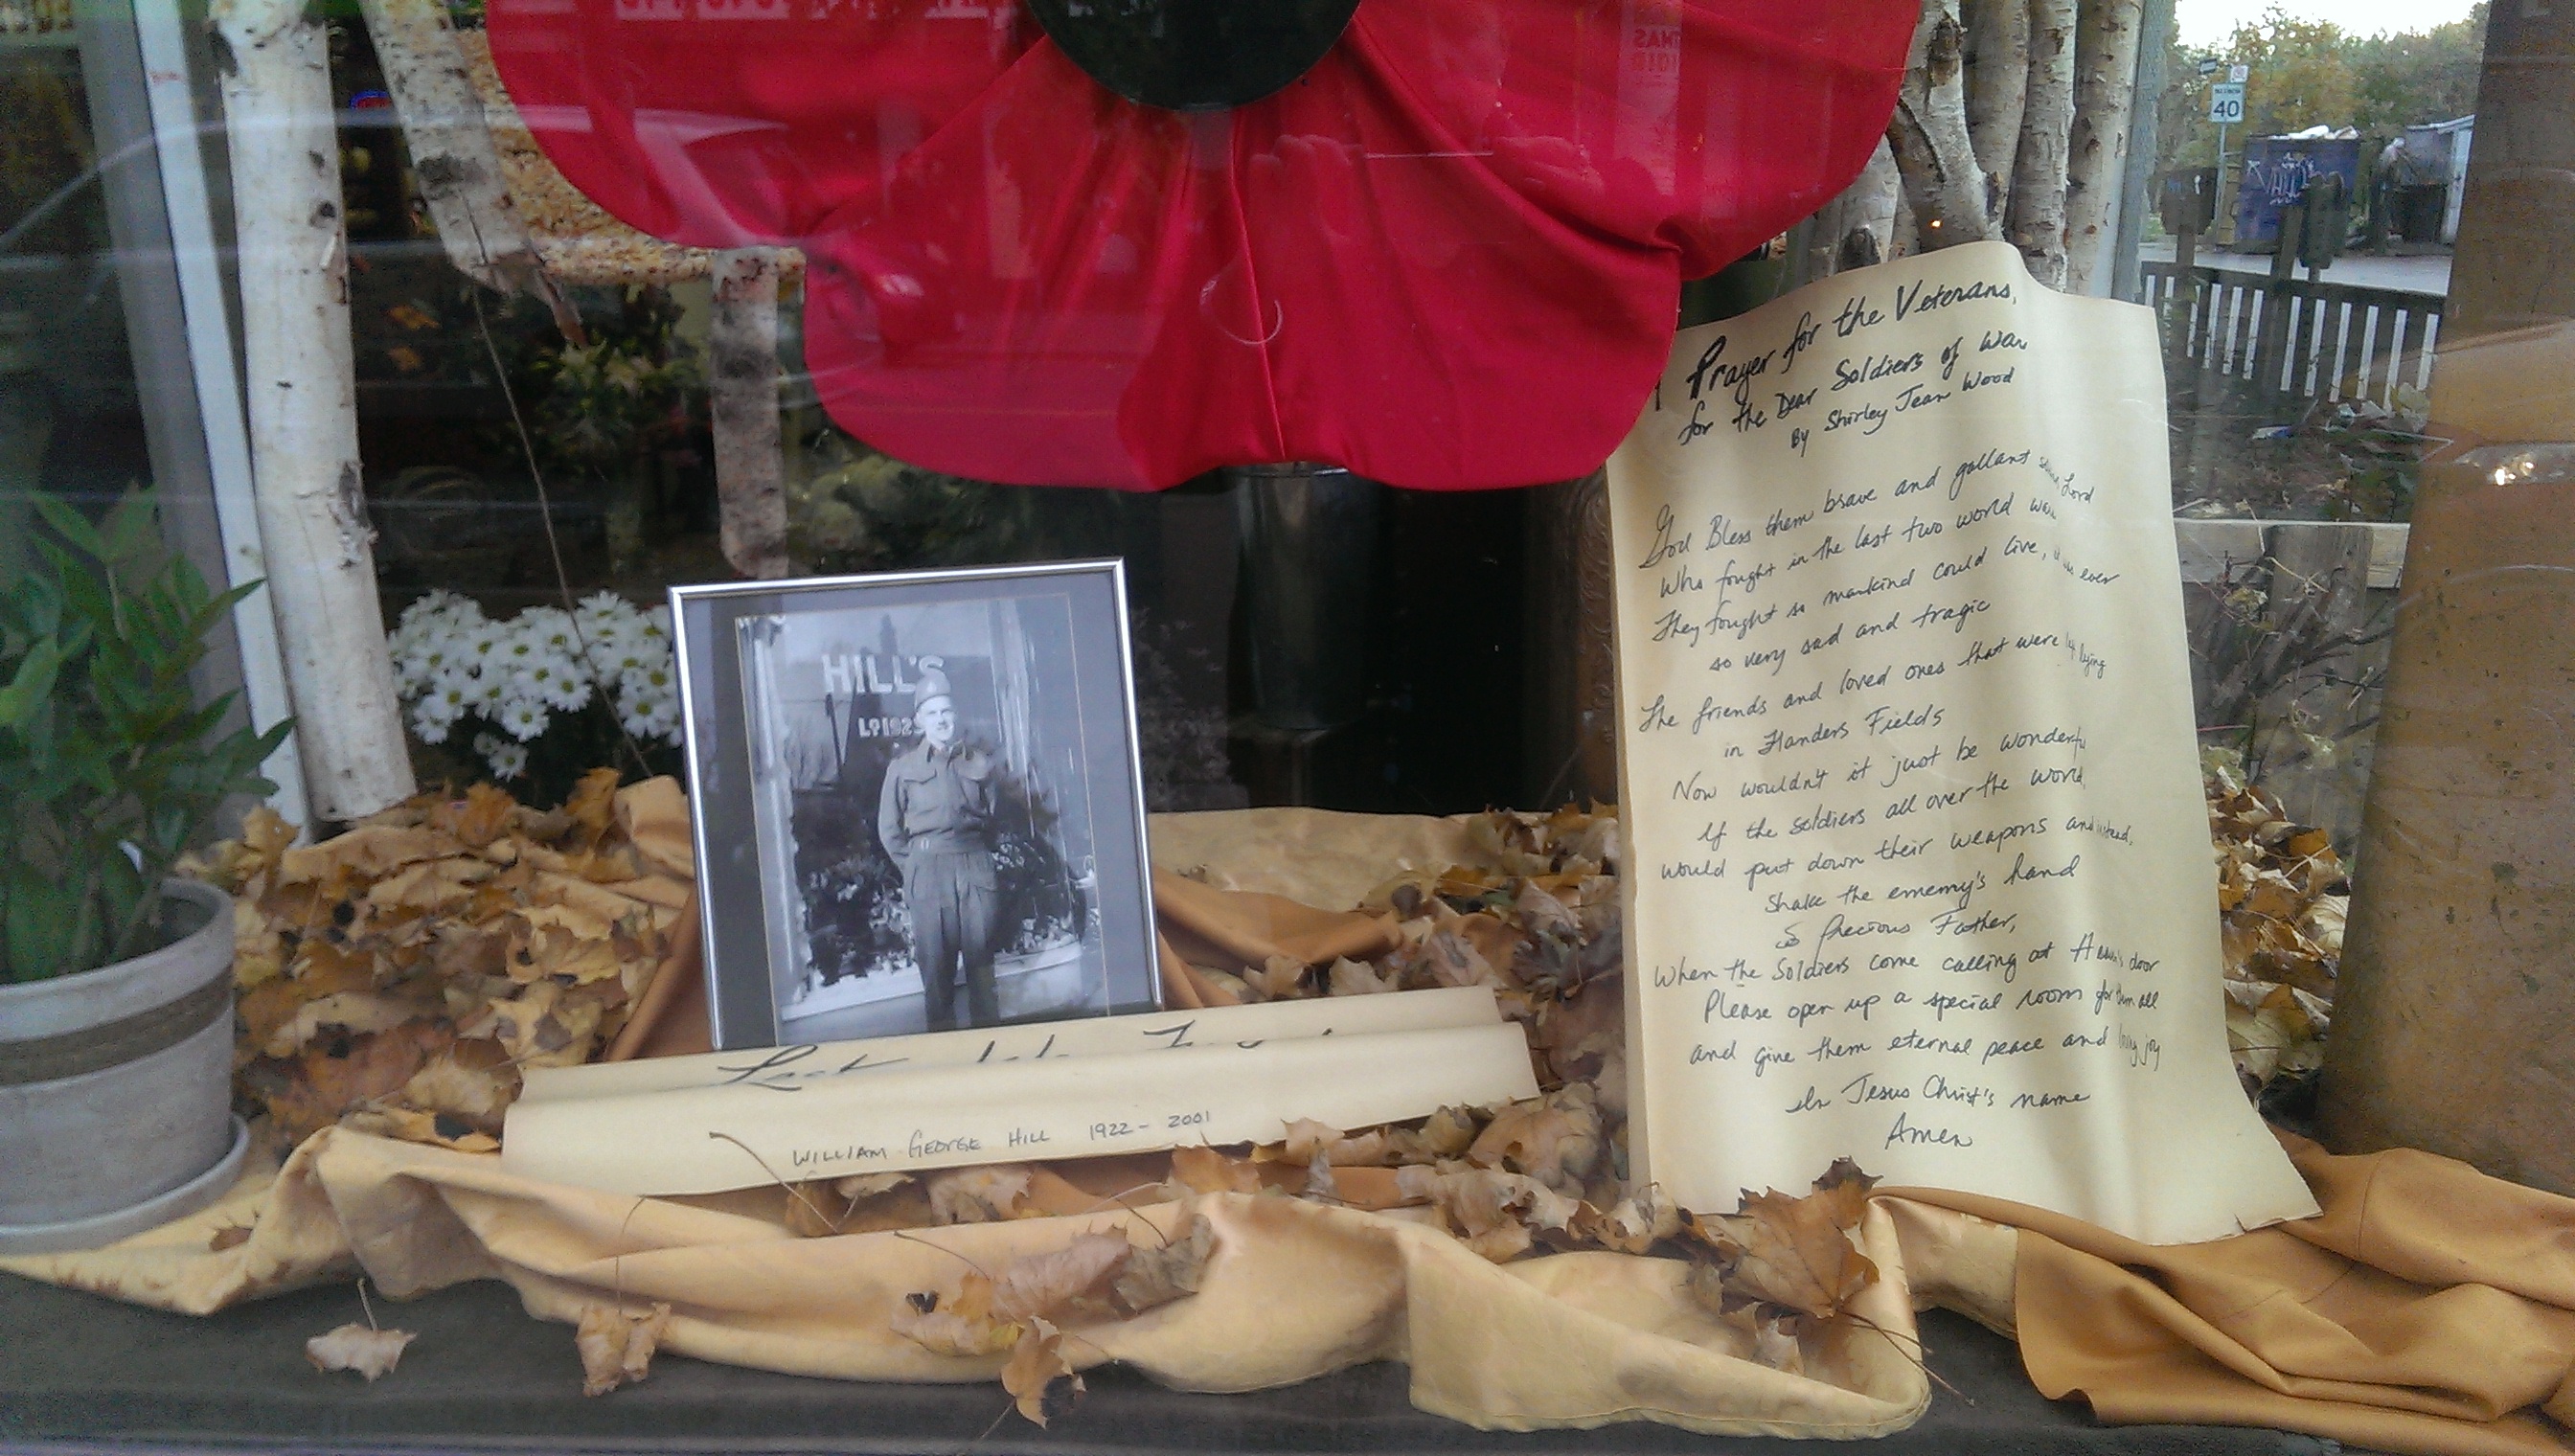 MAXIMUM
40
HILL'S
Prayer for the Veterans,
for the Dear Soldiers of War
By Shirley Jean Wood
God Bless them brave and gallant Lord
Who fought in the last two world war
They fought so mankind could live, ever
so very sad and tragic
The friends and loved ones that were lying
in Flanders Fields
Now wouldn't it just be wonderful
If the soldiers all over the world
would put down their weapons and instead,
Shake the ememy's hand
Precious Father,
When the Soldiers come calling at Heaven's door
Please open up a special room for them all
and give them eternal peace and joy
In Jesus Christ's name
Amen
WILLIAM GEORGE HILL 1922 - 2001